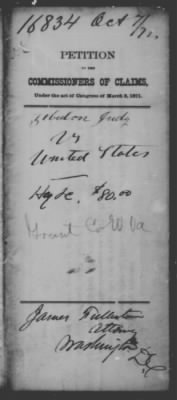 16834 Oct 7/72
PETITION
TO THE
COMMISSIONERS OF CLAIMS,
Under the act of Congress of March 3, 1871.
Gibeon Judy
Vs
United States
Hyde. $80.00
Grant Co W Va
James Fullerton
Attorney
Washington D.C